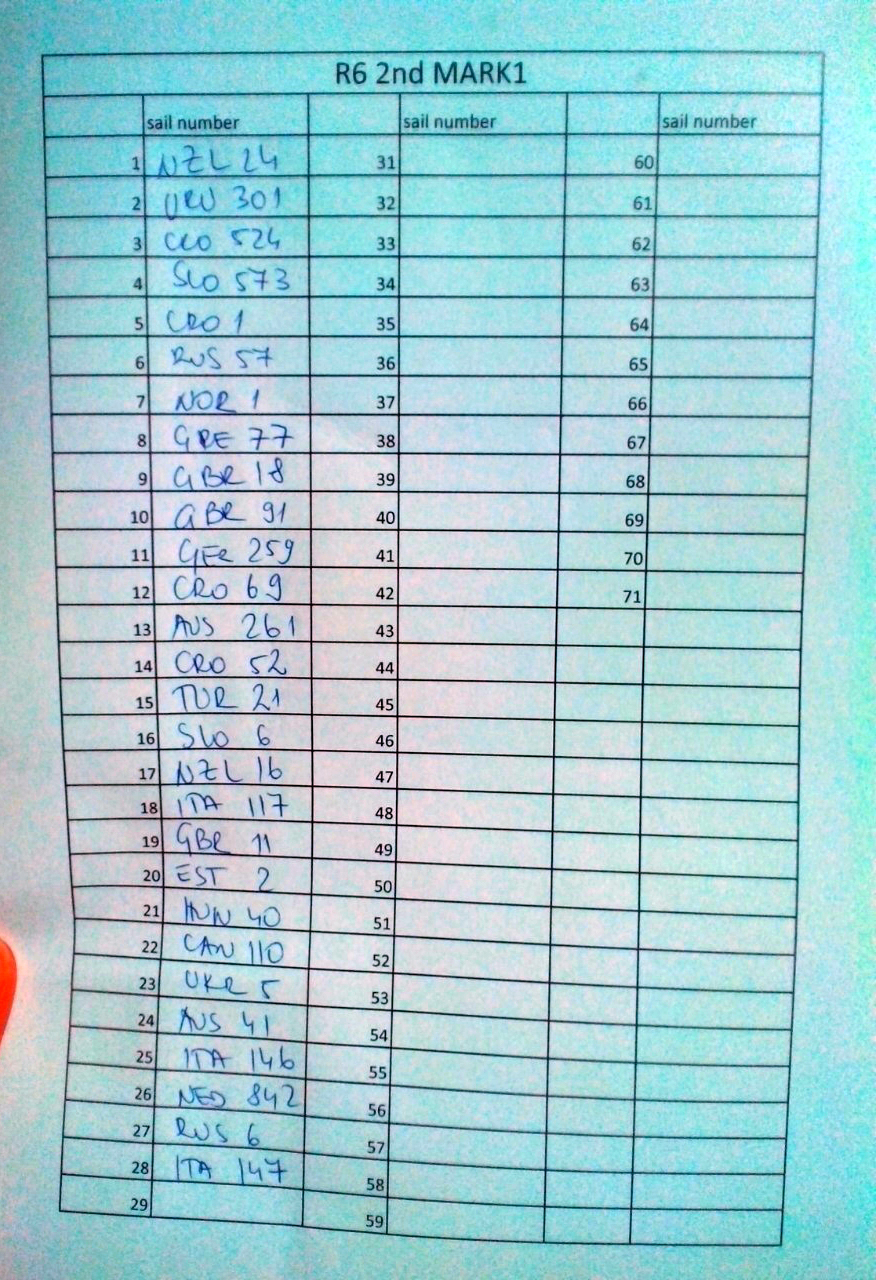 R6 2nd MARK1
sail number sail number sail number
1 NZL 24 31 60
2 URU 301 32 61
3 CRO 524 33 62
4 SLO 573 34 63
5 CRO 1 35 64
6 RUS 57 36 65
7 NOR 1 37 66
8 GRE 77 38 67
9 GBR 18 39 68
10 GBR 91 40 69
11 GER 259 41 70
12 CRO 69 42 71
13 AUS 261 43
14 CRO 52 44
15 TUR 21 45
16 SLO 6 46
17 NZL 16 47
18 ITA 117 48
19 GBR 11 49
20 EST 2 50
21 HUN 40 51
22 CAN 110 52
23 UKR 5 53
24 AUS 41 54
25 ITA 146 55
26 NED 842 56
27 RUS 6 57
28 ITA 147 58
29 59